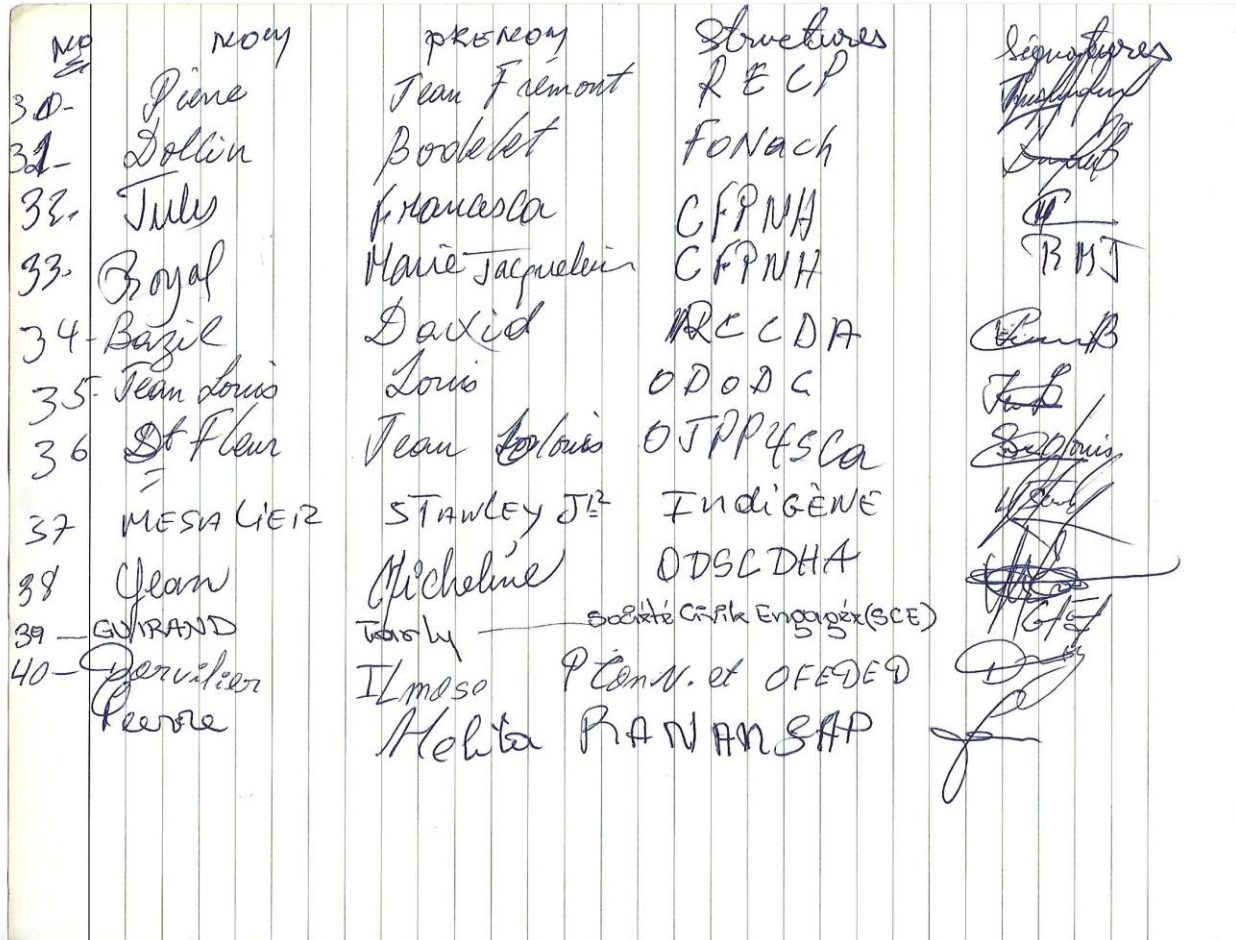 No Nom PRENOM Structures Signatures
30- Pierre Jean Frémont RECP
31- Dollin Bodelet FoNach
32- Jules Francesca CFPNH
33- Royal Marie Jacquelin CFPNH RMJ
34- Bazil David RCCDA
35- Jean Louis Louis ODODC
36 St Fleur Jean Lolouis OJPP4SCa
37 MESALIER STANLEY JR INDIGÈNE
38 Jean Micheline ODSCDHA
39 - GUIRAND Tarly Société Civile Engagée (SCE)
40 - Dorvilier ILmose PConv. et OFEDED
Pierre Melita RANANSAP